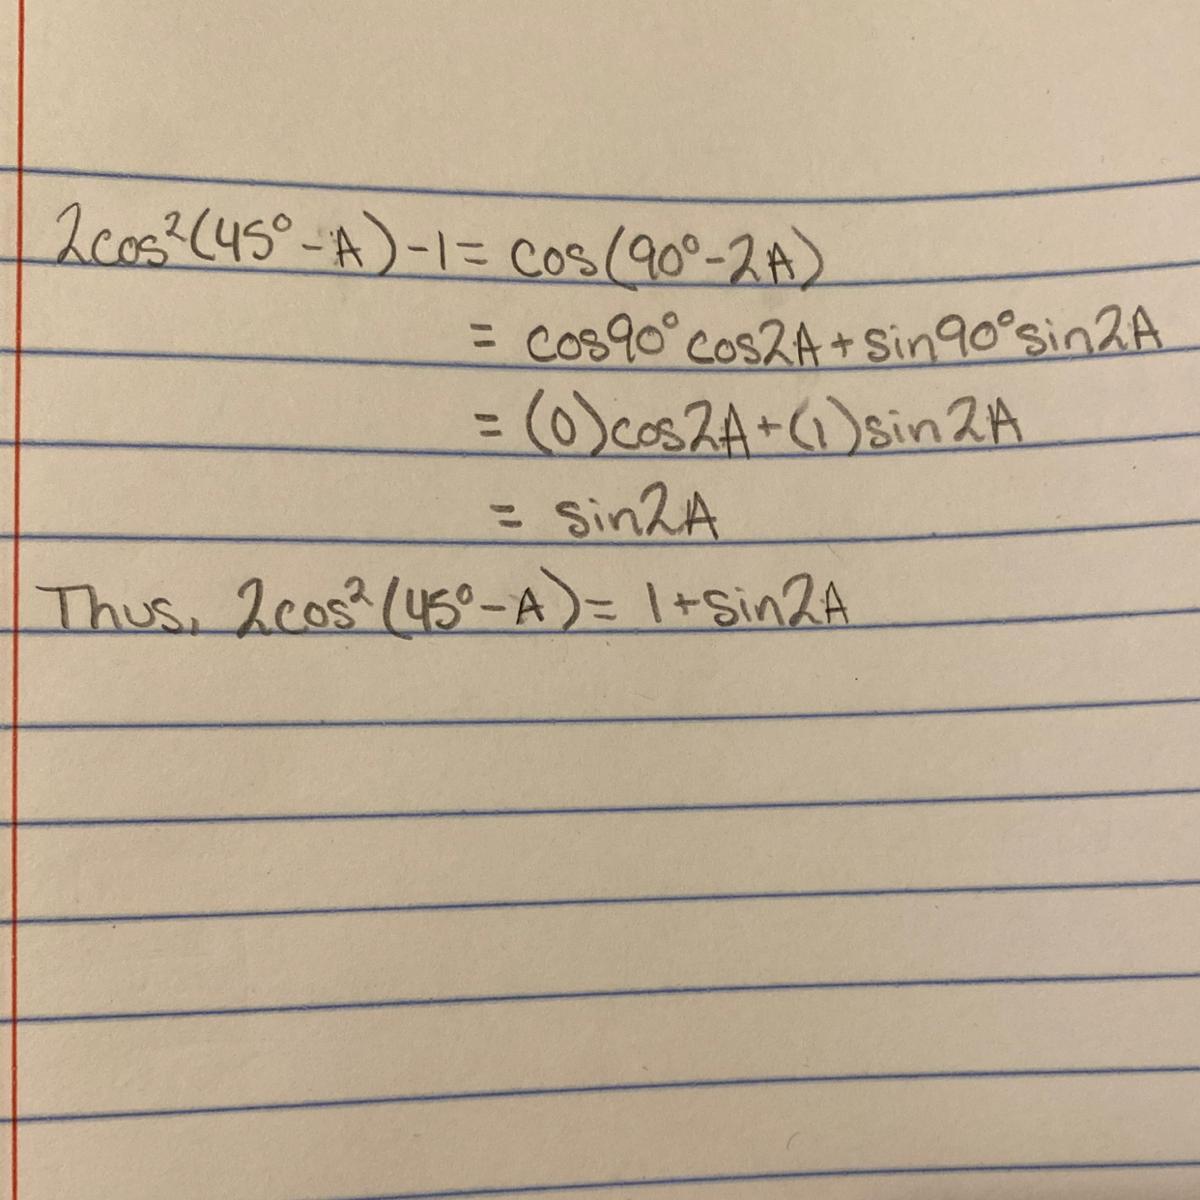 2cos²(45° - A) - 1 = cos(90° - 2A)
= cos90° cos2A + sin90° sin2A
= (0)cos2A + (1)sin2A
= sin2A
Thus, 2cos²(45° - A) = 1 + sin2A